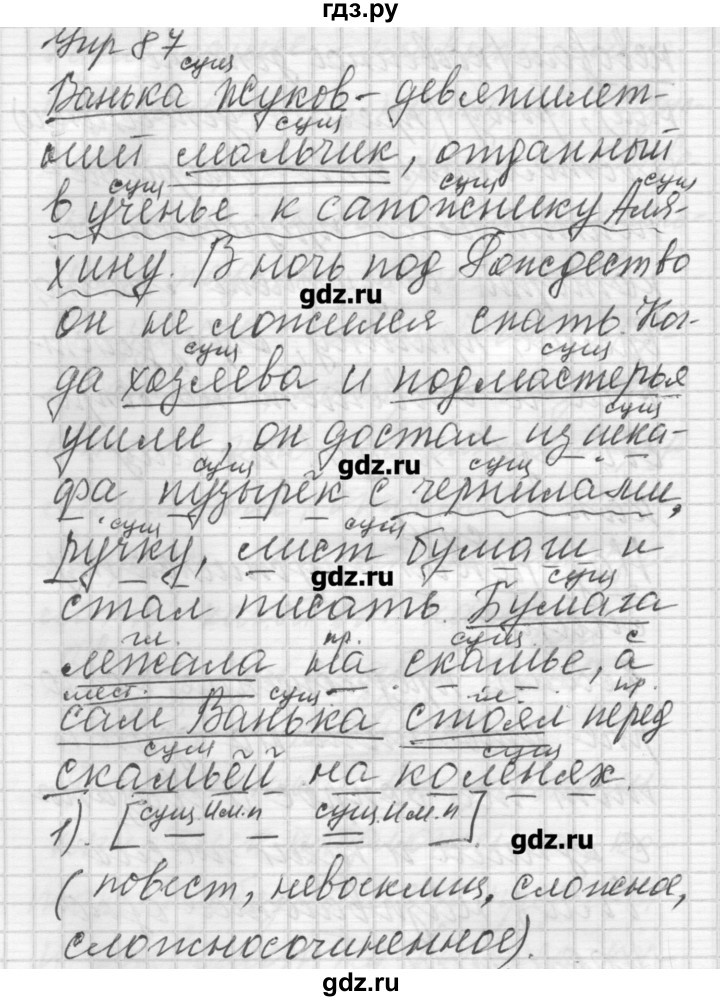 гдз.ру
Упр 87
сущ
Ванька Жуков - девятилет-
сущ
ний мальчик, отданный
сущ сущ сущ
в ученье к сапожнику Аля-
хину. В ночь под Рождество
gdz.ru
он не ложился спать. Ког-
сущ сущ
да хозяева и подмастерья
сущ
ушли, он достал из шка-
gdz.ru
сущ сущ
фа пузырёк с чернилами,
сущ сущ
ручку, лист бумаги и
gdz.ru
сущ
стал писать. Бумага
гл. пр. сущ с
лежала на скамье, а
мест. сущ гл. пр.
сам Ванька стоял перед
сущ сущ
скамьёй на коленях.
1). [сущ.Им.п сущ.Им.п]
gdz.ru
(повест, невосклиц, сложное,
сложносочиненное).
gdz.ru